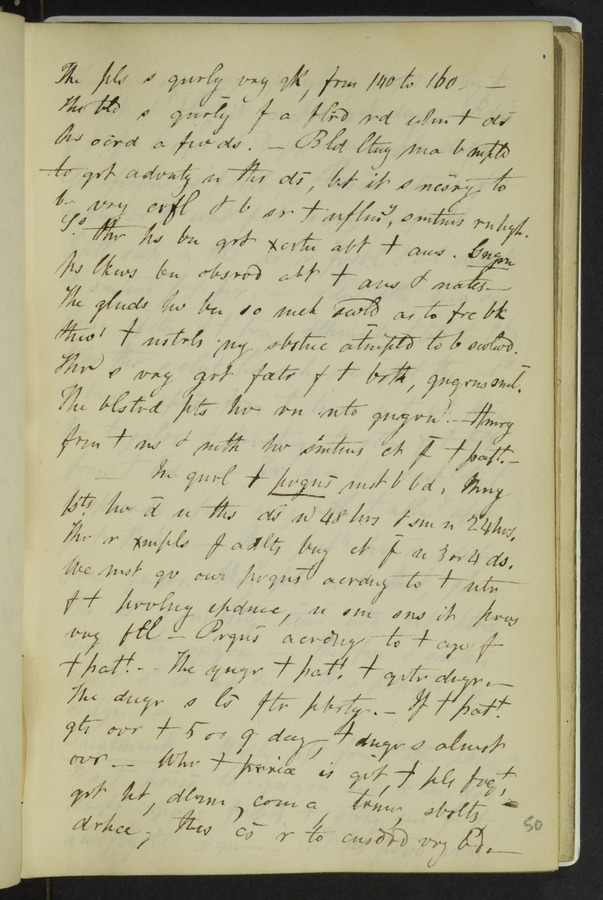 The pls s gnrly vry qk, frm 140 to 160. —
The bld s gnrly f a flrd rd whn t ds
hs ocrd a fw ds. — Bld ltng ma b mpld
to grt advntg n ths ds, bt it s ncsry to
b vry crfl & b sr t nflmy, smtms rn hgh.
Ys thr hs bn grt xcrtn abt t ans. Gngrn
hs lkws bn obsrvd abt t ans & nates —
The glnds hv bn so mch swld as to frc bk
thro' t nstrls ny sbstnc atmptd to b swlwd.
Thr s vry grt fætr f t brth, gngrns sml.
The blstrd pts hv rn nto gngrn. — Hmrg
frm t ns & mth hv smtms ct f t patt. —
— In gnrl t prgns mst b bd, Mny
pts hv d n ths ds n 48 hrs & sm n 24 hrs.
Thr r xmpls f adlts bng ct f n 3 or 4 ds.
We mst gv our prgns acrdng to t ntr
f t prvlng epdmc, n sm sns it provs
vry ftl — Prgns acrdng to t age f
t patt. — The yngr t patt. t grtr dngr. —
The dngr s ls ftr pbrty. — If t patt.
gts ovr t 5 or 9 day, t dngr s almst
ovr. — Whr t is grt, t pls frqt,
grt ht, dlrm, coma, stls
drhœ, ths cs r to cnsdrd vry bd. —
50